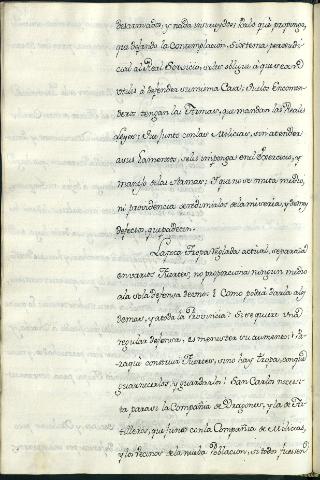 desarmados, y nada instruydos: Pido que proponga,
que dejando la Contemplacion, sistema perjudi-
cial al Real Servicio, se les obligue á que sean
utiles á defender su misma Casa: Que los Encomen-
deros tengan las Armas, que mandan las Reales
Leyes: Que junto con las Milicias, sin atender
a sus lamentos, se les imponga en el Exercicio, y
manejo de las Armas: Y que no se omita medio,
ni providencia de redimirlos de la miseria, y demas
defectos, que padecen.
La poca Tropa Reglada actual, separada
en varios Fuertes, no proporciona ningun medio
a la sola defensa de uno: ¿Como podrá darla a los
demas, y a toda la Provincia? Si requiere una
regular defensa, es menester su aumento: ¿Pa-
ra qué construir Fuertes, si no hay Tropa, con que
guarnecerlos, y guardarlos? San Carlos necesi-
ta para sí la Compañia de Dragones, y la de Ar-
tilleros, que junto con la Compañia de Milicias,
y los Vecinos de la nueba Poblacion, si todos fuesen